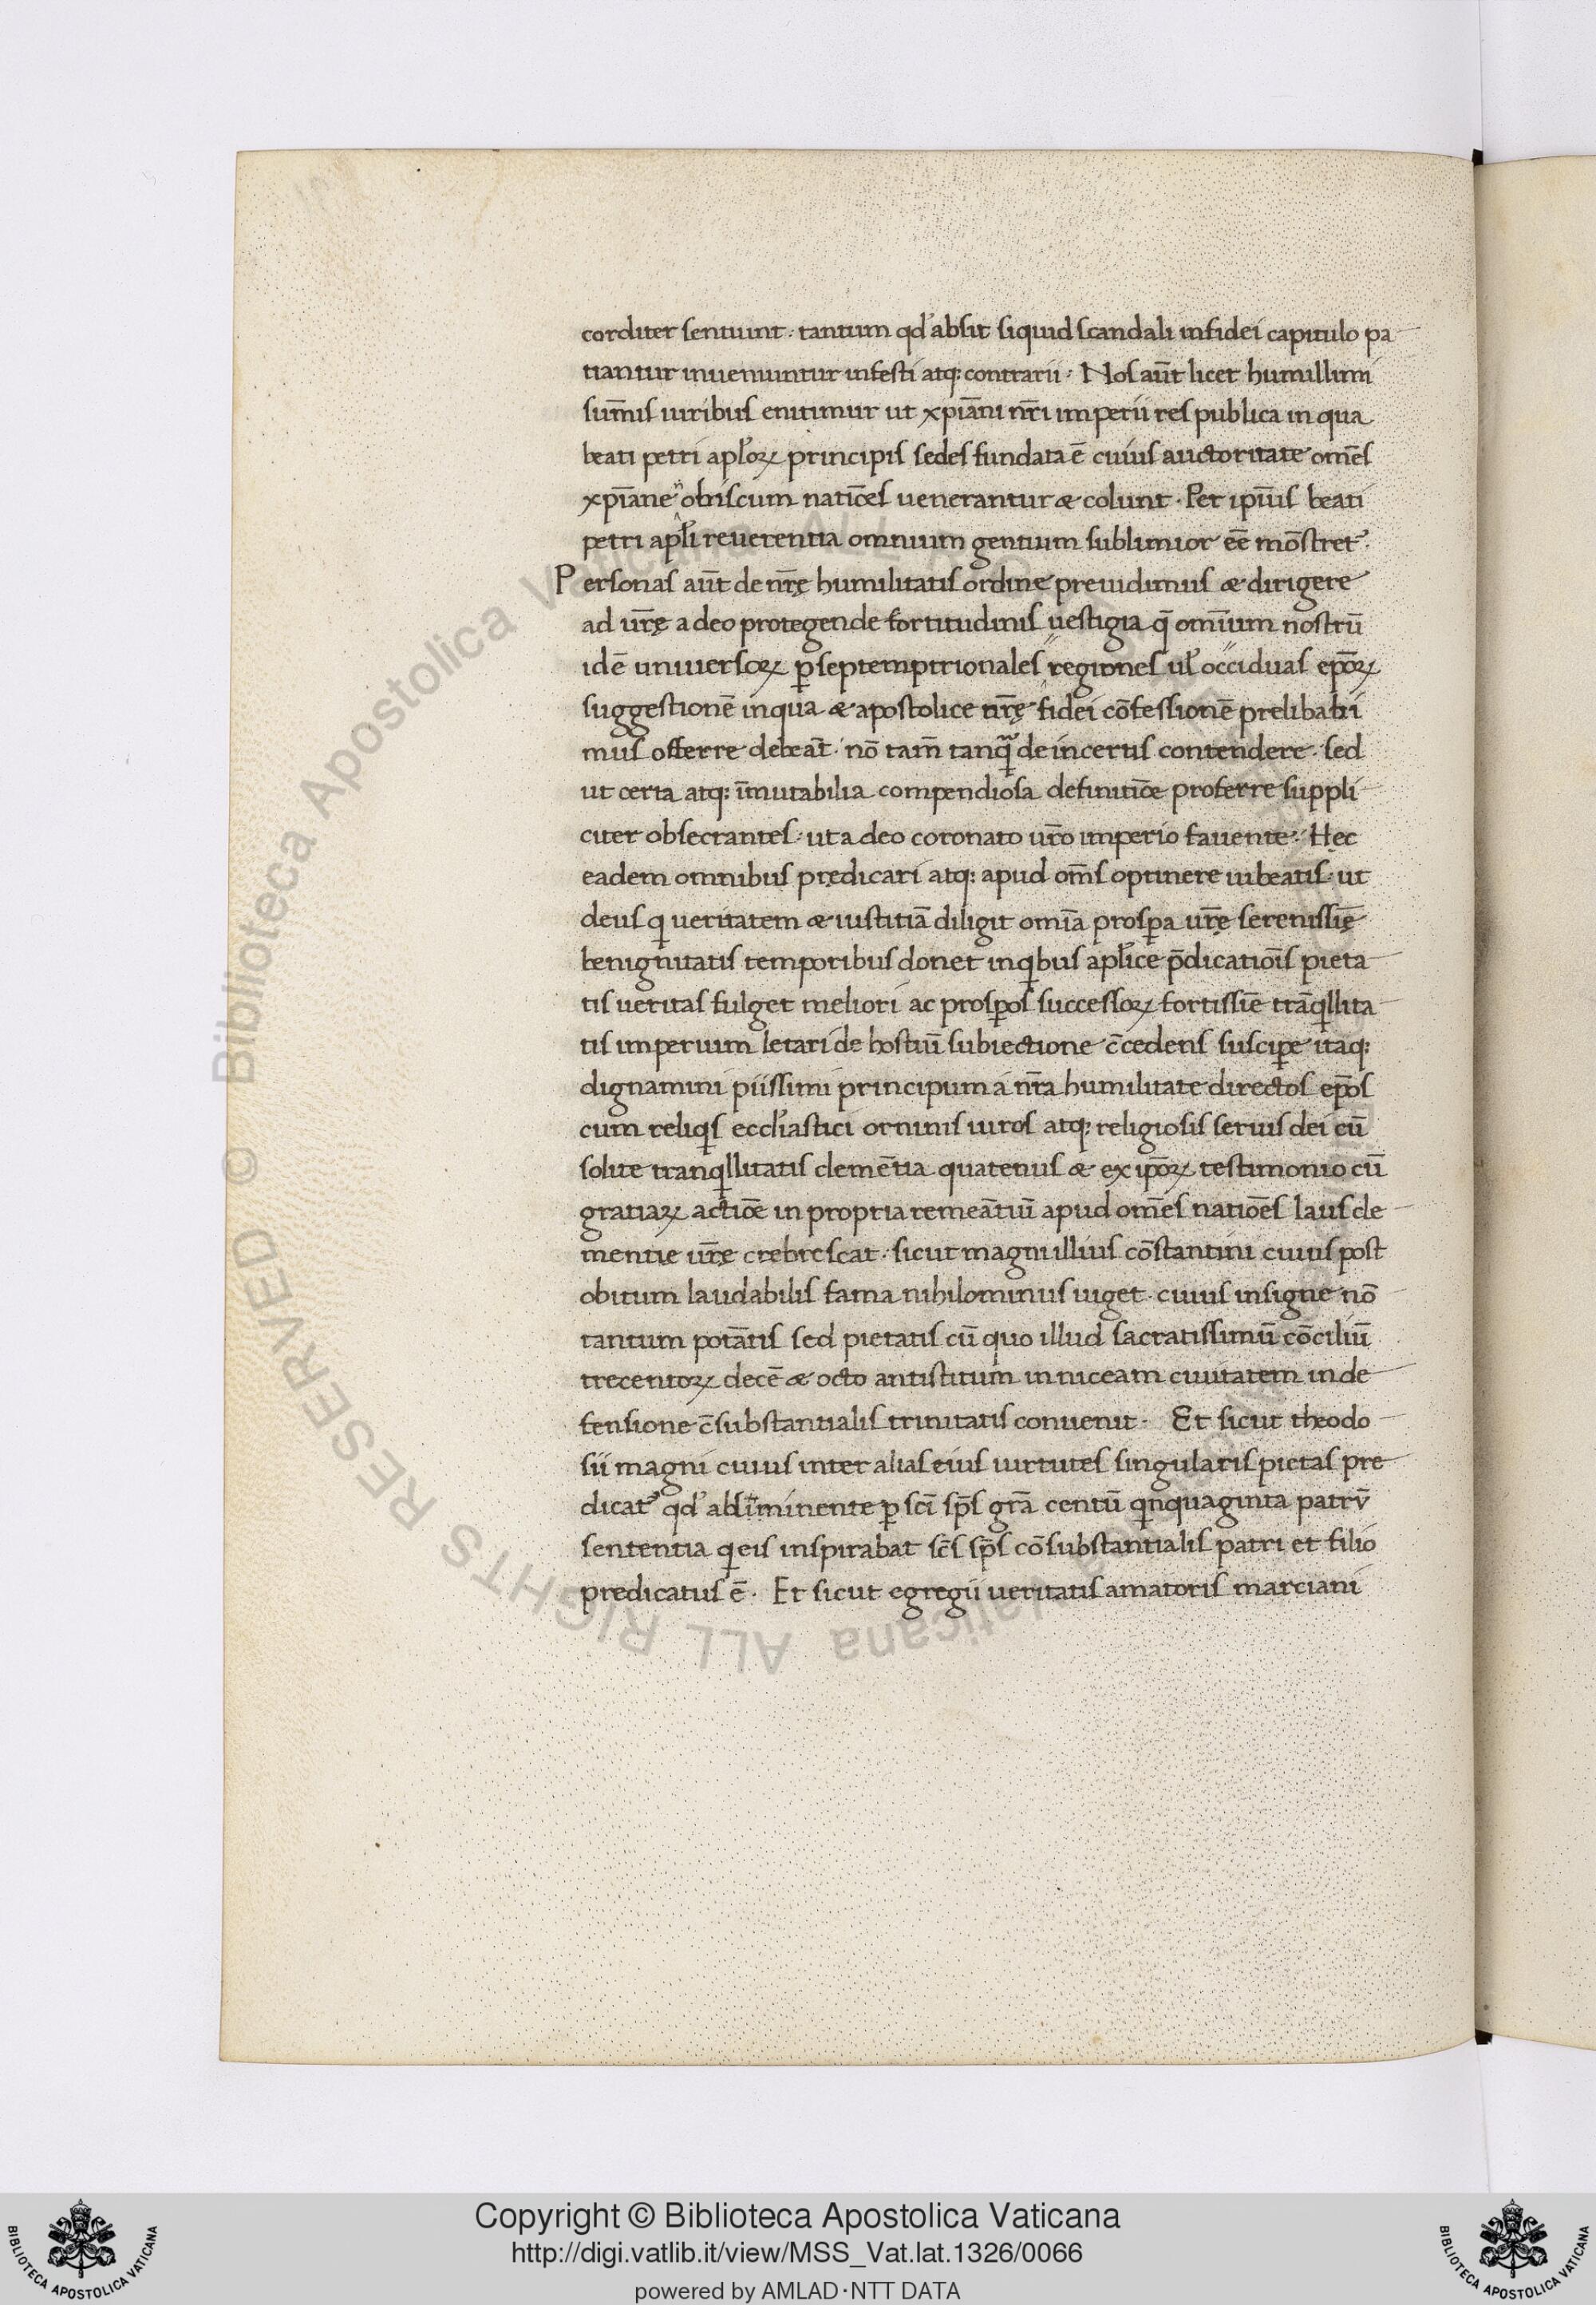 corditer sentiunt · tantum qd' absit siquid scandali in fidei capitulo pa
tiantur inueniuntur infesti atq: contrarii · Nos aūt licet humillimi
sum̄is uiribus enitimur ut xp̄iani nr̄i imperii res publica in qua
beati petri apl'oꝝ principis sedes fundata ē cuius auctoritate om̄es
xp̄iane nobiscum natiōes uenerantur & colunt · Per ip̄ius beati
petri apl'i reuerentia omnium gentium sublimior eē mōstret᷑ ·
Personas aūt de nr̄ę humilitatis ordine preuidimus & dirigere
ad ur̄ę a deo protegende fortitudinis uestigia q̄ om̄ium nostrū
idē uniuersoꝝ ꝑ septemptrionales regiones ul' occiduas ep̄oꝝ
suggestionē in qua & apostolice nr̄ę fidei cōfessionē prelibaui
mus offerre debeāt · nō tam̄ tanqꝫ de incertis contendere · sed
ut certa atq: īmutabilia compendiosa definitiōe proferre suppli
citer obsecrantes · ut a deo coronato ur̄o imperio fauente · Hęc
eadem omnibus prędicari atq: apud om̄s optinere iubeatis · ut
deus qi ueritatem & iustitiā diligit om̄ia prosꝑa ur̄ę serenissīę
benignitatis temporibus donet in qibus apl'ice p̄dicatiōis pieta
tis ueritas fulget meliori ac prosꝑos successoꝝ fortissīe trāqillita
tis imperium letari de hostiū subiectione c̄cedens susciꝑe itaq:
dignamini piissimi principum a nr̄a humilitate directos ep̄os
cum reliqis eccl'iastici orninis uiros atq: religiosis seruis dei cū
solite tranqillitatis clemētia quatenus & ex ip̄oꝝ testimonio cū
gratiaꝝ actiōe in propria remeātiū apud om̄es natiōes laus cle
mentię ur̄ę crebrescat · sicut magni illius cōstantini cuius post
obitum laudabilis fama nihilominus uiget · cuius insigne nō
tantum potātis sed pietatis cū quo illud sacratissimū cōciliū
trecentoꝝ decē & octo antistitum in niceam ciuitatem in de
fensione c̄substantialis trinitatis conuenit · Et sicut theodo
sii magni cuius inter alias eius uirtutes singularis pietas pre
dicat᷑ qd' ab īminente ꝑ sc̄i sp̄s gr̄a centū qinquaginta patrū
sententia qi eis inspirabat sc̄s sp̄s cōsubstantialis patri et filio
predicatus ē · Et sicut egregii ueritatis amatoris marciani
© Biblioteca Apostolica Vaticana ALL RIGHTS RESERVED
Copyright © Biblioteca Apostolica Vaticana
http://digi.vatlib.it/view/MSS_Vat.lat.1326/0066
powered by AMLAD·NTT DATA
BIBLIOTECA APOSTOLICA VATICANA
BIBLIOTECA APOSTOLICA VATICANA